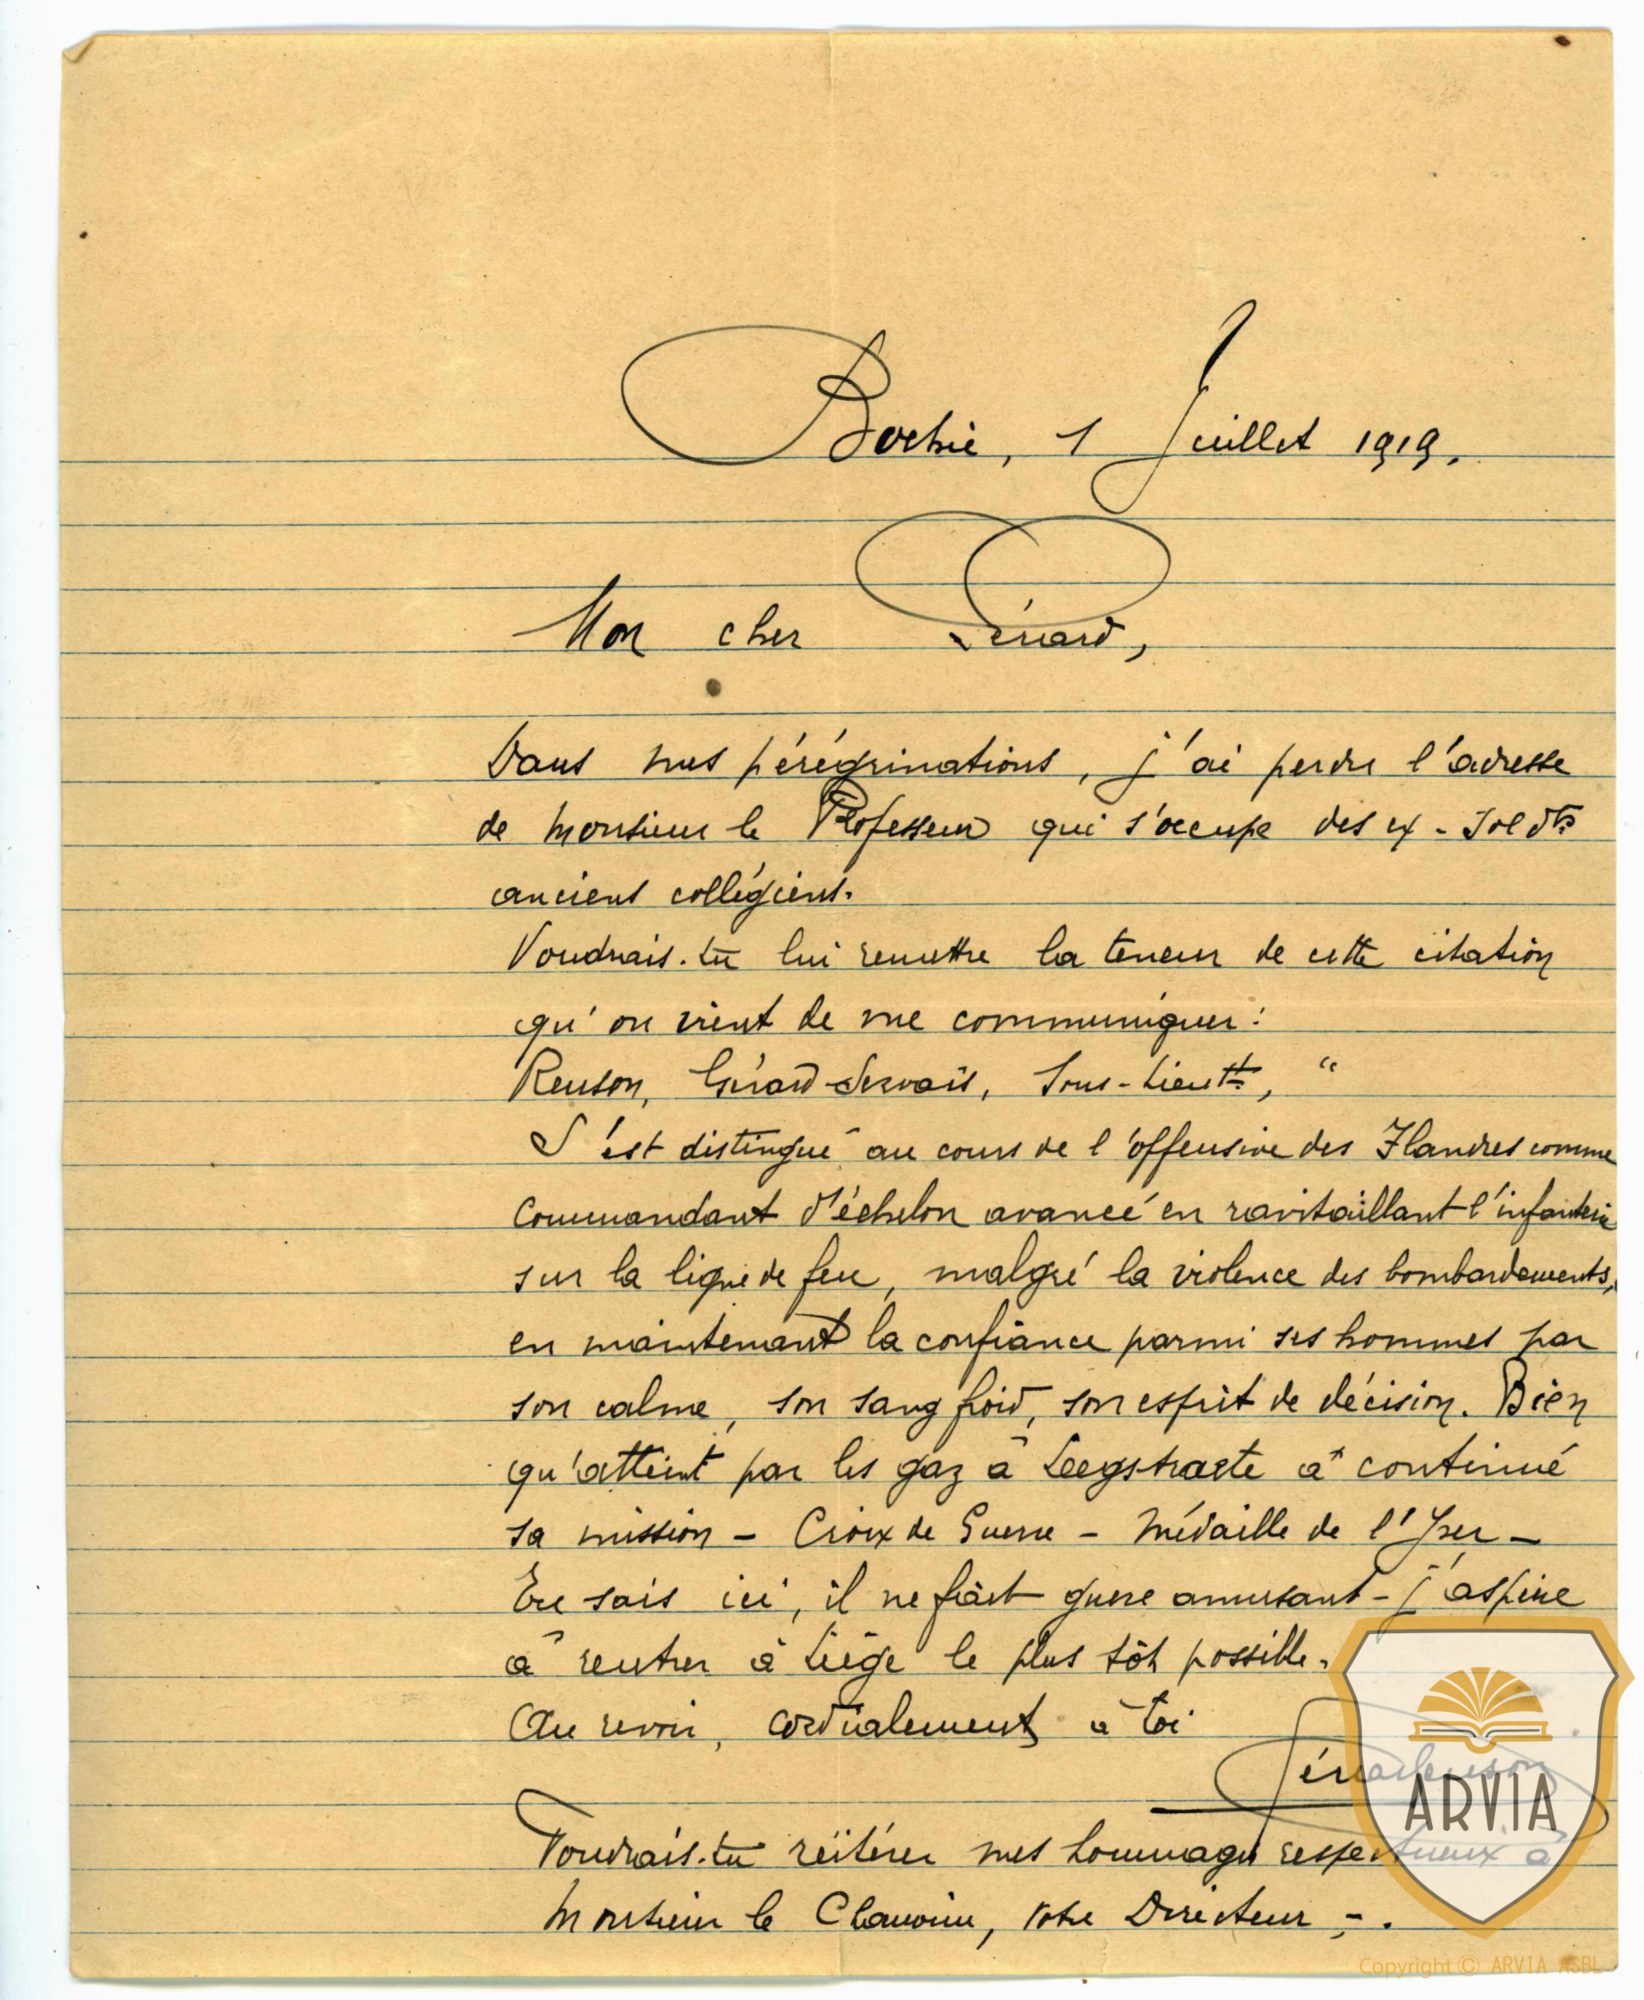 Bochie, 1 Juillet 1919.
Mon cher Lénard,
Dans mes pérégrinations, j'ai perdu l'adresse
de Monsieur le Professeur qui s'occupe des ex-Soldts
anciens collégiens.
Voudrais-tu lui remettre la teneur de cette citation
qu'on vient de me communiquer:
Renson, Gérard-Servais, Sous-Lieutt, "
S'est distingué au cours de l'offensive des Flandres comme
Commandant d'échelon avancé en ravitaillant l'infanterie
sur la ligne de feu, malgré la violence des bombardements,
en maintenant la confiance parmi ses hommes par
son calme, son sang froid, son esprit de décision. Bien
qu'atteint par les gaz à a continué
sa mission - Croix de Guerre - Médaille de l'Yser -
Tu sais ici, il ne fait guere amusant - j'aspire
à rentrer à Liège le plus tôt possible.
Au revoir, cordialement à toi
GérardRenson
ARVIA
Voudrais-tu réitérer mes hommages respectueux à
Monsieur le Chanoine, votre Directeur -.
Copyright © ARVIA ASBL